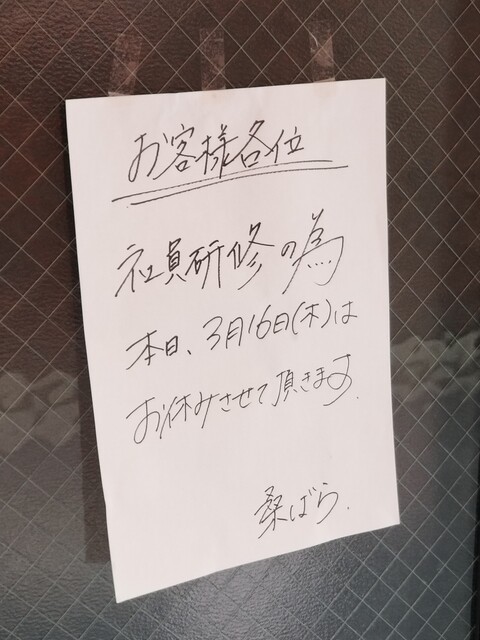 お客様各位
社員研修の為
本日、3月16日(木)は
お休みさせて頂きます.
桑ばら.